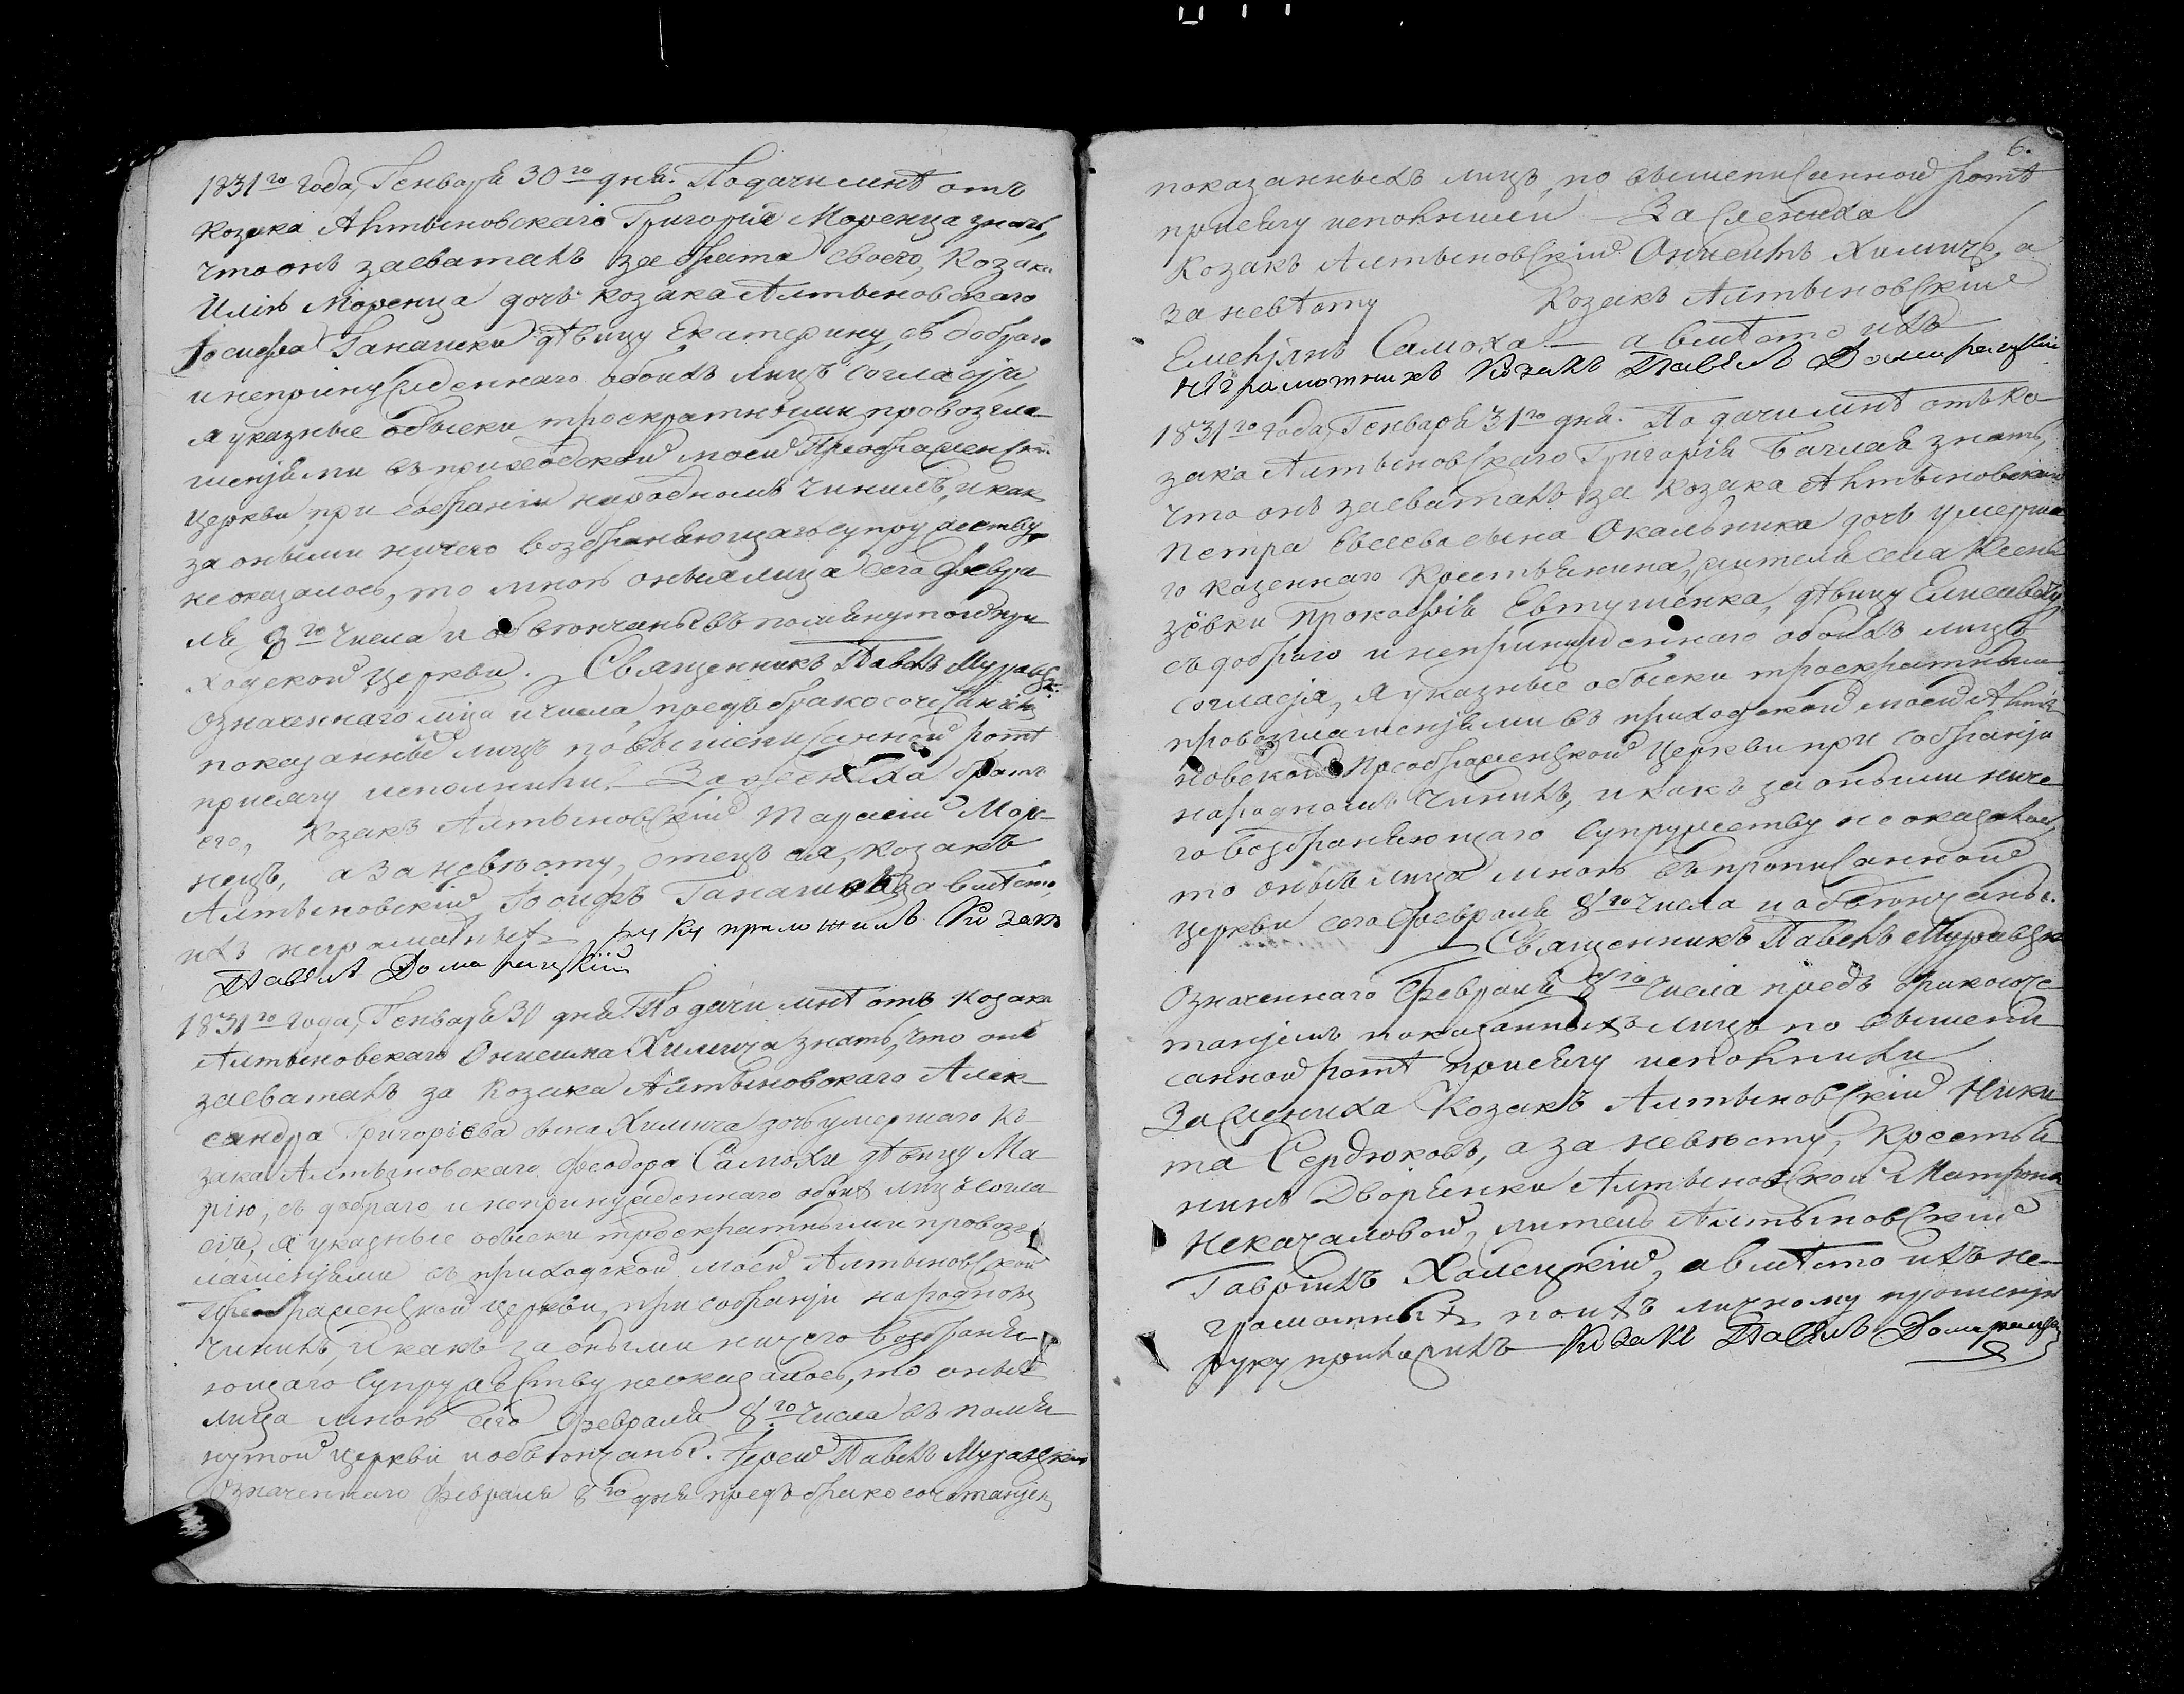 1831го года, Генваря 30го дня. Подачи мнѣ отъ
козака Алтыновскаго Григорія Моренца знать,
что онъ засваталъ за брата своего, козака
Илію Моренца дочь козака Алтыновскаго
Іосифа Ганачки дѣвицу Екатерину, съ добраго
и непринужденнаго обоихъ лицъ согласія,
я указные обыски троекратными провозгла
шеніями въ приходской моей Преображенской
церкви, при собраніи народномъ чинилъ, и какъ
за оными ничего возбраняющаго супружеству
не оказалось, то мною оныя лица сего Февра
ля 8го числа и обвѣнчаны въ помянутой при
ходской церкви. Священникъ Павелъ
Означеннаго мца и числа, предъ бракосочетаніемъ
показанные лицъ по вышеписанной ротѣ
присягу исполнили. За жениха братъ
его, козакъ Алтыновскій Тарасій Мор-
нецъ, а за невѣсту, отецъ ея, козакъ
Алтыновскій Іосифъ а вмѣсто
ихъ неграматныхъ руку приложилъ козакъ
Павелъ
1831го года, Генваря 30 дня Подачи мнѣ отъ козака
Алтыновскаго Онисима Химича знать, что онъ
засваталъ за козака Алтыновскаго Алек-
сандра Григоріева сына Химича дочь умершаго ко-
зака Алтыновскаго Феодора Самохи дѣвицу Ма-
рію, съ добраго и непринужденнаго обоихъ лицъ согла
сія, я указные обыски троекратными провозг
лашеніями въ приходской моей Алтыновской
Преображенской церкви, при собраніи народномъ
чинилъ, и какъ за оными ничего возбраня
ющаго супружеству неоказалось, то оные
лица мною сего Февраля 8го числа въ помя
нутой церкви и обвѣнчаны. Іерей Павелъ
Означеннаго Февраля 8го дня предъ бракосочетаніемъ
6.
показанныхъ лицъ, по вышеписанной ротѣ
присягу исполнили — За жениха
Козакъ Алтыновскій Онисимъ Химичъ, а
за невѣсту Козакъ Алтыновскій
Емеліянъ Самоха — а вмѣсто ихъ
неграмотныхъ козакъ Павелъ
1831го года, Генваря 31го дня. Подачи мнѣ отъ ко
зака Алтыновскаго Григорія Бачлая знать,
что онъ засваталъ за козака Алтыновскаго
Петра Евсеева сына Окальника дочь умерша
го казеннаго крестьянина, жителя села Ксень
зовки Прокофія Евтушенка, дѣвицу Елисавету,
съ добраго и непринужденнаго обоихъ лицъ
согласія, я указные обыски троекратными
провозглашеніями въ приходской моей Алты
новской Преображенской церкви при собраніи
народномъ чинилъ, и какъ за оными ниче
го возбраняющаго супружеству не оказалось,
то оные лица мною въ прописанной
церкви сего Февраля 8го числа и обвѣнчаны.
Священникъ Павелъ
Означеннаго Февраля 8го числа предъ бракосоче
таніемъ показанныхъ лицъ по вышепи
санной ротѣ присягу исполнили
За жениха козакъ Алтыновскій Ники
та Сердюковъ, а за невѣсту, крестья
нинъ Дворянки Алтыновской Матроны
Некачаловой, житель Алтыновскій
Гавріилъ а вмѣсто ихъ не-
грамотныхъ по ихъ личному прошенію
руку приложилъ — козакъ Павелъ